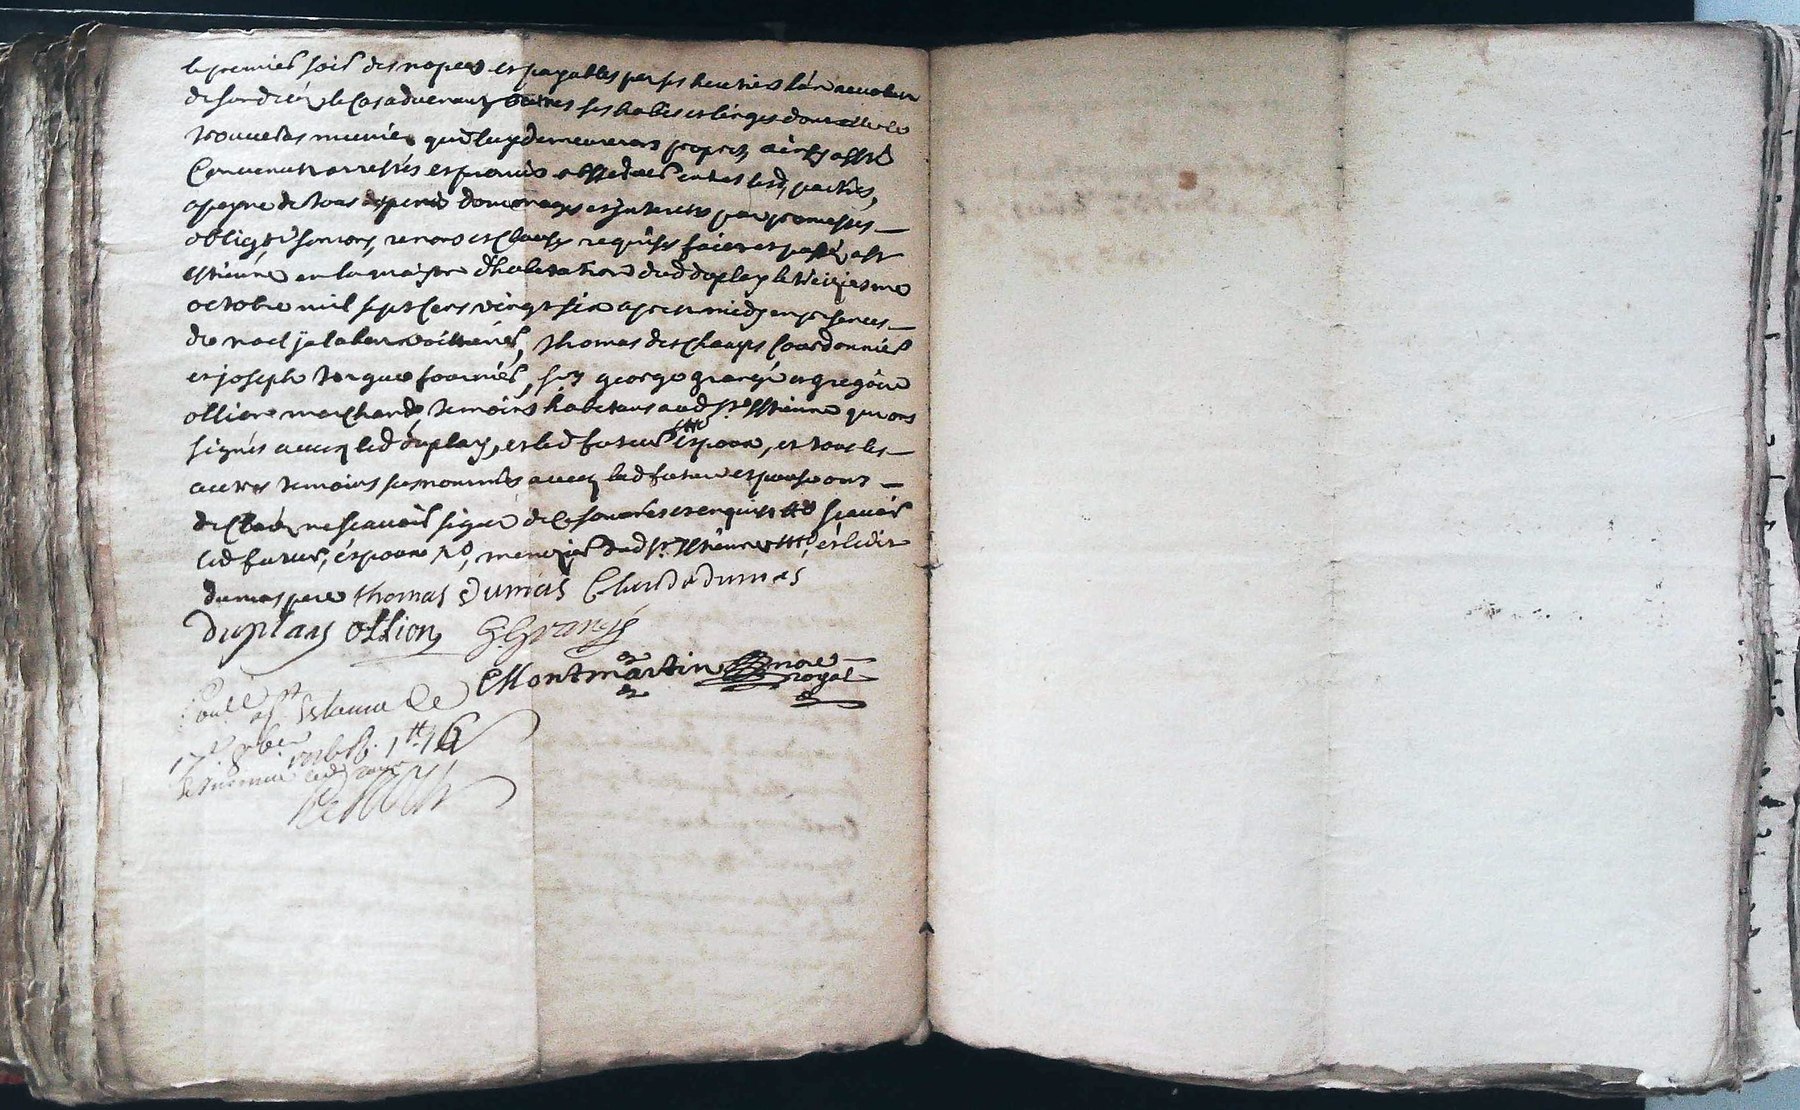 le premier soir des nopces et payables par ses heritiers l'an revolu
de son deces le cas advenant outres ses habits et linges dont elle se
trouvera munie, qui luy demeureront propres ainsy a esté
Convenu arrestés et promis observer entre lesd. parties,
a peyne de tous depens dommages et interests par promesses
oblig^on soumons, renons et clauses requises fait et passé a St
Estienne en la maison d'habitation dud duplay le seiziesme
octobre mil sept cens vingt six apres midy en presences
de noel jalabert voiturier, Thomas deschamps Cordonnier
et joseph torgue fournier, srs george grangé et gregoire
ollion marchands, temoins habitans aud St Estienne qui ont
signés avecq led duplay, et led futur espoux, et tous les
autres temoins susnommés avecq lad future espouse ont
declaré ne scavoir signer de ce sommés et enquis scavoir
led futur, espoux menuzier dud St Estienne et ledit
dumas pere thomas Dumas Claude dumas
duplaay ollion G. Grangé
Montmartin nore
royal
Conlle a St Estienne le
17e 8bre 1726 1tt 16